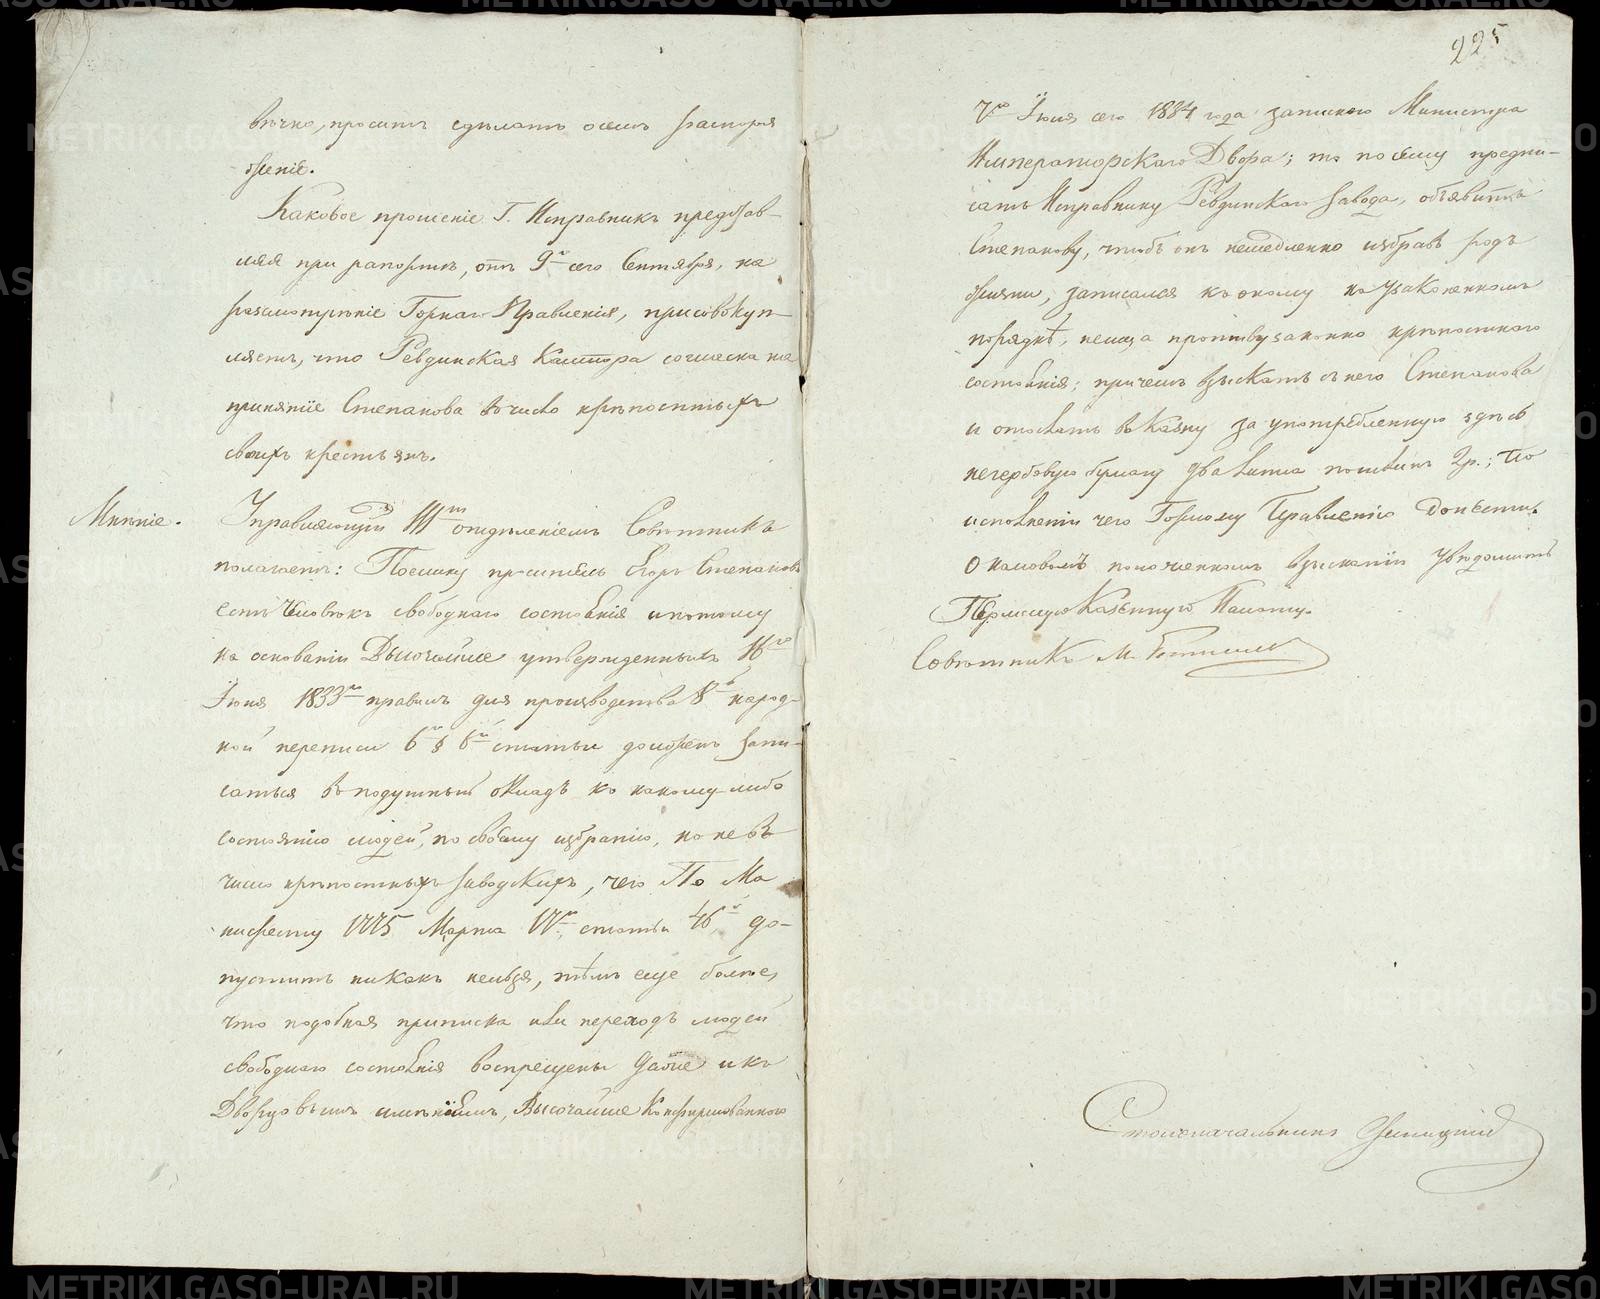 вѣчно, проситъ сдѣлать о семъ распоря
женіе.
Каковое прошеніе Г. Исправникъ представ-
ляя при рапортѣ, отъ 9го сего Сентября, на
разсмотрѣніе Горнаго Правленія, присовокуп-
ляетъ, что Ревдинская Контора согласна на
принятіе Степанова въ число крѣпостныхъ
своихъ крестьянъ.
Мнѣніе.
Управляющій III мъ отдѣленіемъ Совѣтникъ
полагаетъ: Поелику проситель Егоръ Степановъ
есть человѣкъ свободнаго состоянія и потому
на основаніи Высочайше утвержденныхъ 16го
Іюня 1833го правилъ для производства 8й народ-
ной переписи 6го § 6й статьи долженъ запи-
саться въ подушный окладъ къ какому либо
состоянію людей, по своему избранію, но не въ
число крѣпостныхъ заводскихъ, чего По Ма
нифесту 1775 Марта 17го, статьи 46й до-
пустить никакъ нельзя, тѣмъ еще болѣе,
что подобная приписка или переходъ людей
свободнаго состоянія воспрещены даже и къ
Дворцовымъ имѣніямъ, Высочайше Конфирмованною
225
7го Іюня сего 1834 года запискою Министра
Императорскаго Двора; то по сему предпи-
сать Исправнику Ревдинскаго завода, объявить
Степанову, чтобъ онъ немедленно избравъ родъ
жизни, записался къ оному на узаконенномъ
порядкѣ, не ища противузаконно крѣпостнаго
состоянія; причемъ взыскать съ него Степанова
и отослать въ Казну за употребленную здѣсь
негербовую бумагу два листа пошлинъ 2р.; по
исполненіи чего Горному Правленію донести.
О таковомъ положенномъ взысканіи увѣдомить
Пермскую Казенную Палату.
Совѣтникъ М.
Столоначальникъ